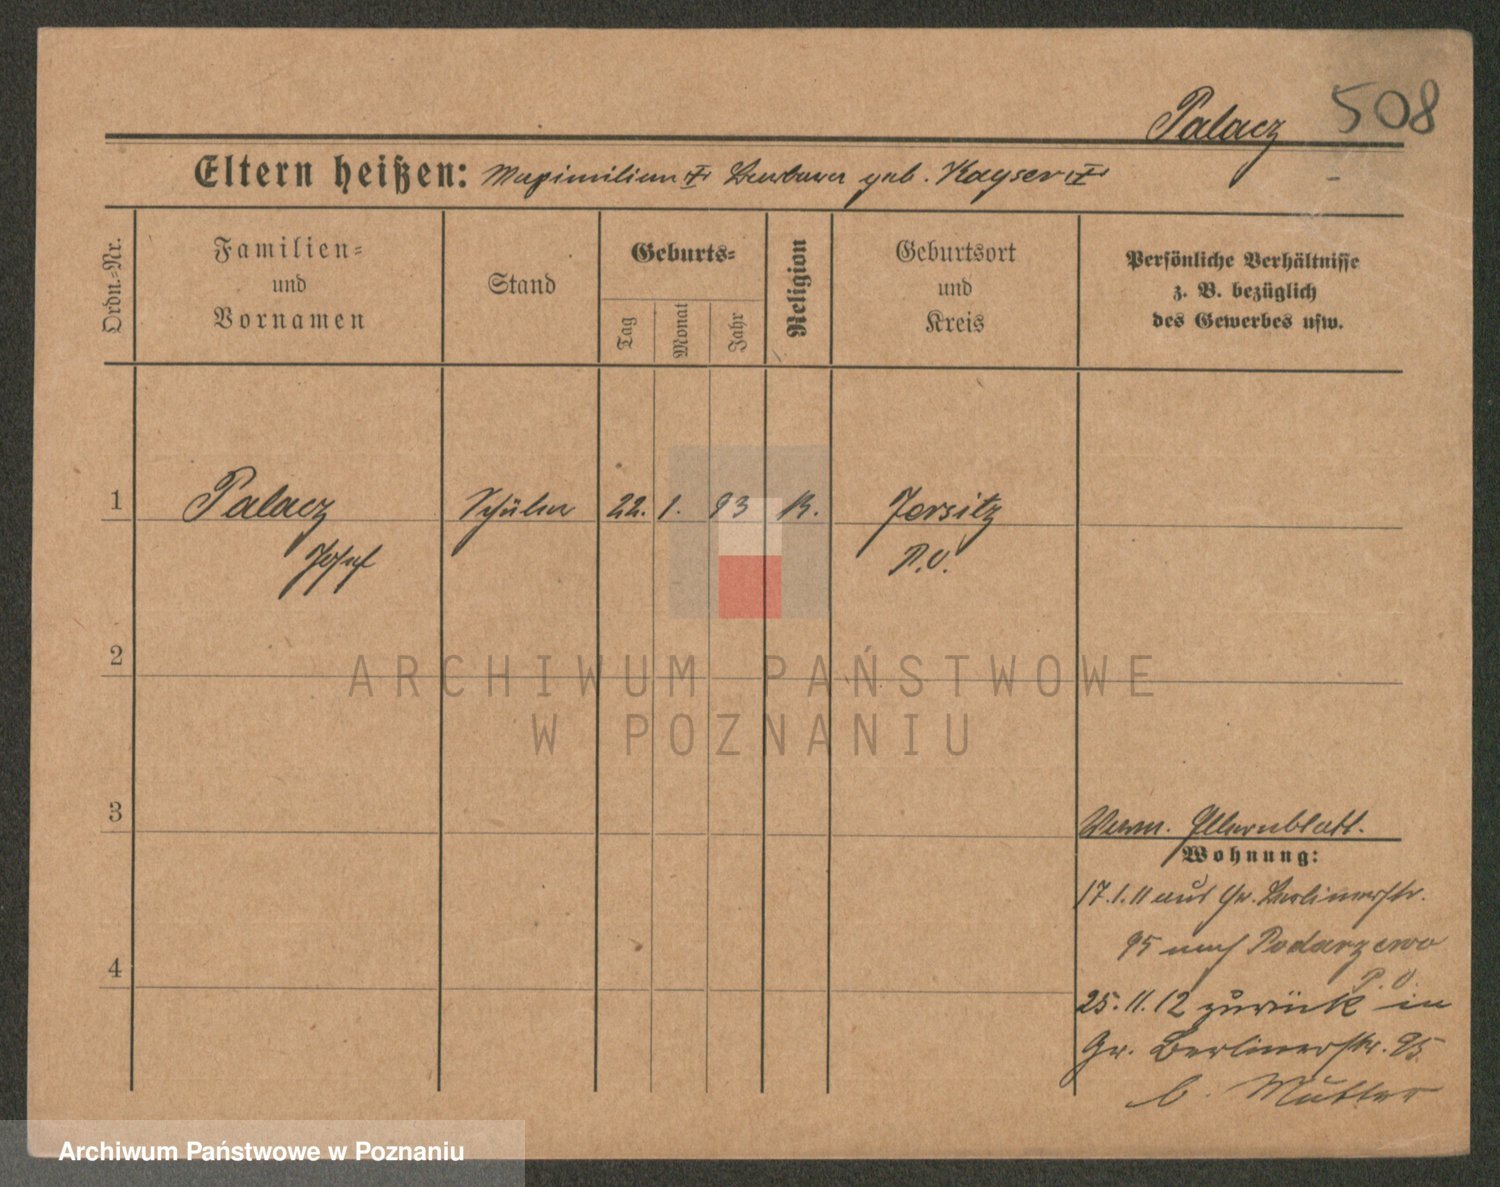 508
Palacz
Eltern heißen: Maximilian Barbara geb. Kayser
Ordn.-Nr.
Familien- und Vornamen
Stand
Geburts-
Tag
Monat
Jahr
Religion
Geburtsort und Kreis
Persönliche Verhältnisse
z. B. bezüglich
des Gewerbes usw.
1 Palacz Schüler 22. 1. 93 K. Jersitz
Josef P.O.
2
ARCHIWUM PAŃSTWOWE
W POZNANIU
3
Verm. Elternblatt.
Wohnung:
17.1.11 aus Gr. Berlinerstr.
95 nach Podarzewo
P.O.
4
25.11.12 zurück in
Gr. Berlinerstr. 95
b. Mutter
Archiwum Państwowe w Poznaniu